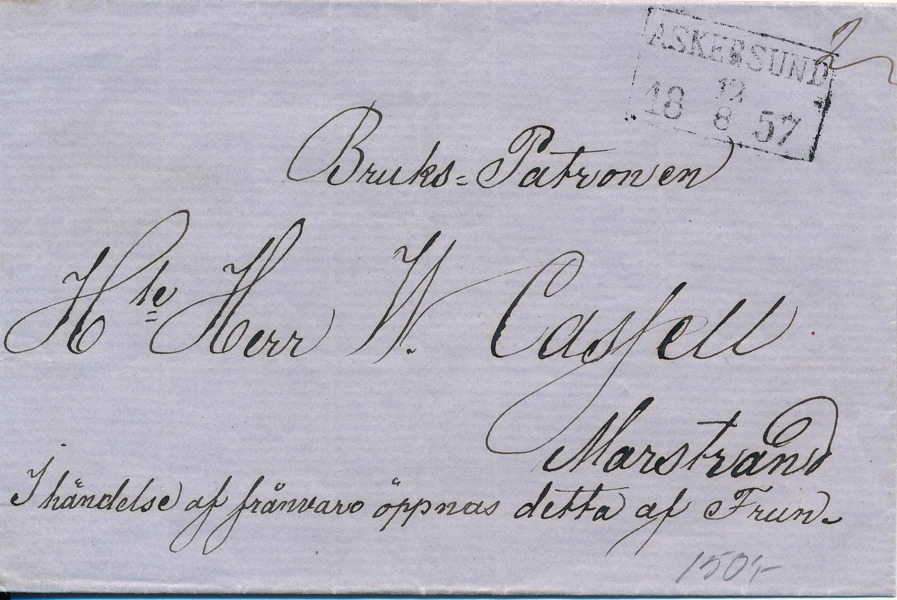 ASKERSUND
12
18 8 57
2
Bruks=Patronen
Hle Herr W. Cassell
Marstrand
I händelse af frånvaro öppnas detta af Frun.
150:-